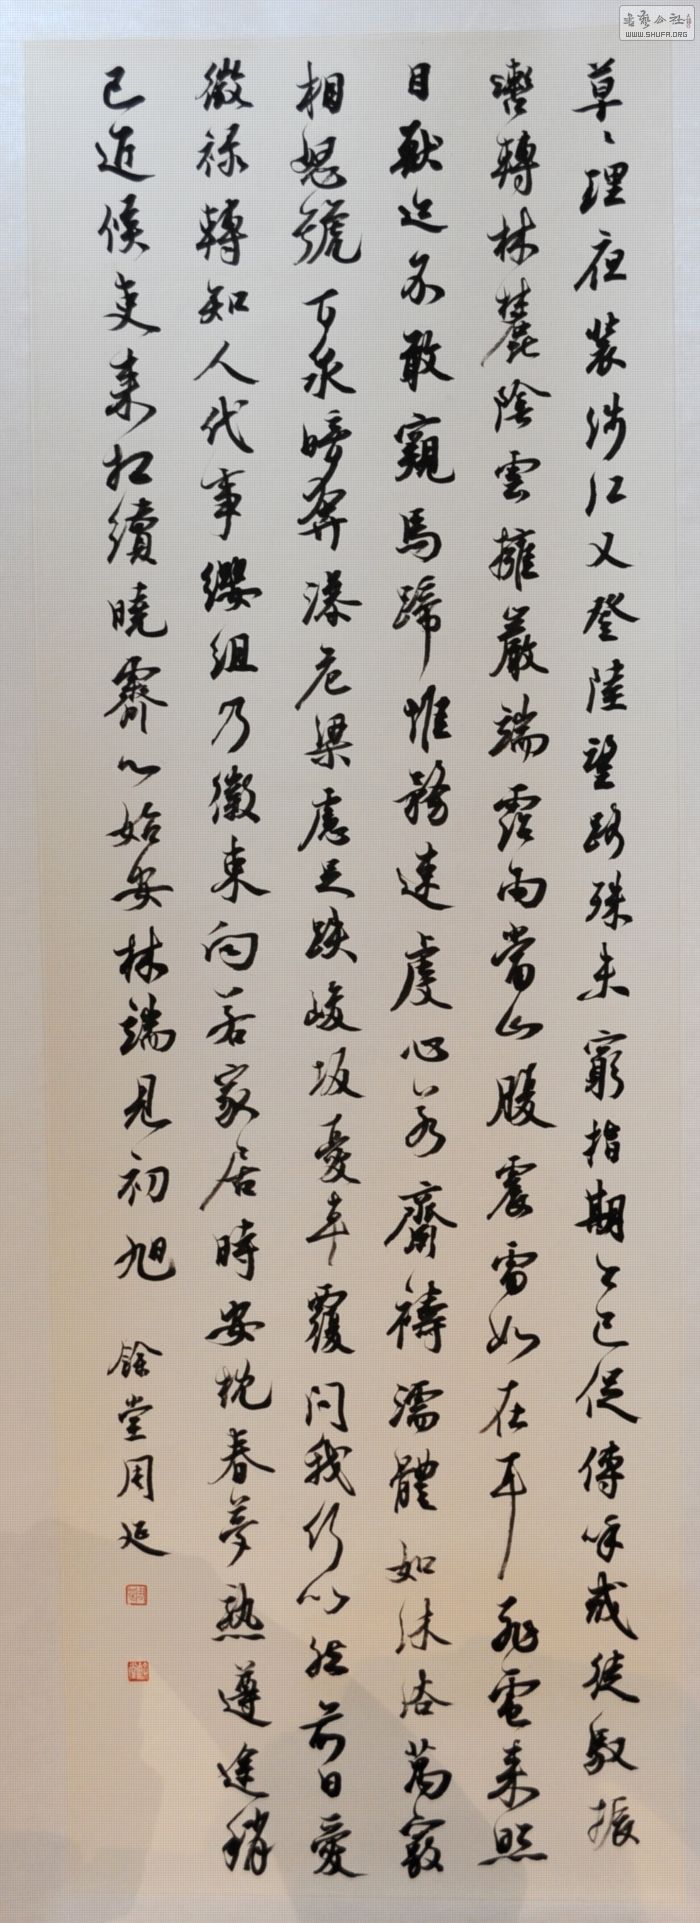 草〻理夜装涉江又登陸望路殊未窮指期今已促傳呼戒徒馭振
轡轉林麓陰雲擁巖端霑雨當山腹震雷如在耳飛電来照
目獸迹不敢窺馬蹄惟務速虔心若齋禱濡體如沐浴萬竅
相怒號百泉暗奔瀑危梁慮足跌峻坂憂車覆問我何以然前日愛
微禄轉知人代事纓組乃徽束向若家居時安枕春夢熟遵途稍
已近候吏来相續曉霽心始安林端見初旭
餘堂周延
书艺公社
WWW.SHUFA.ORG